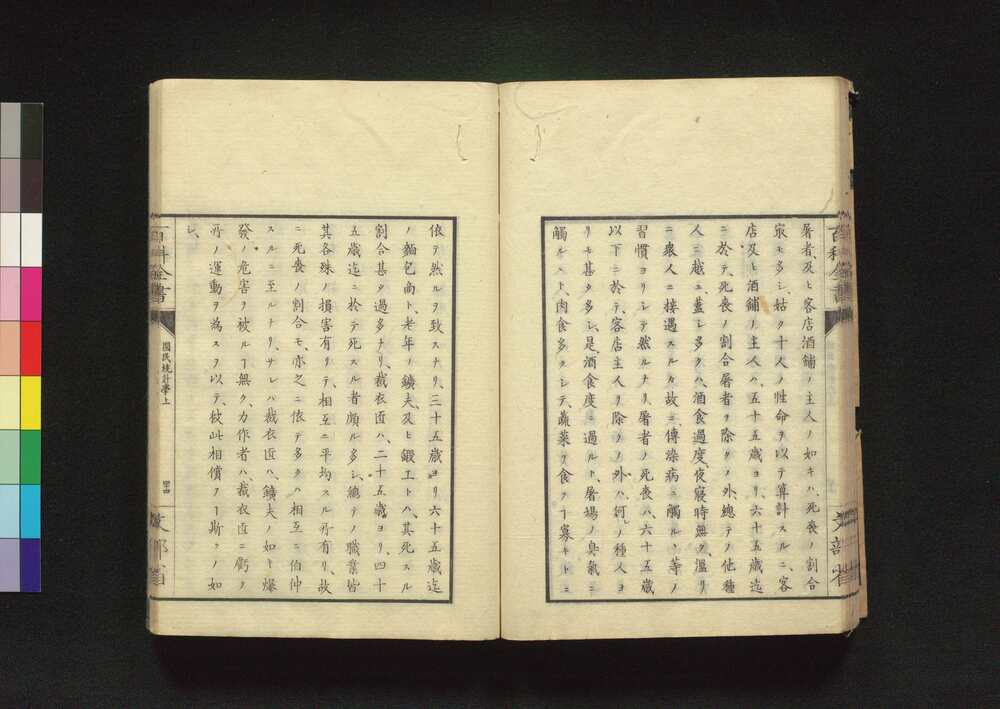 屠者、及ヒ客店酒鋪ノ主人ノ如キハ、死喪ノ割合
㝡モ多シ、姑ク十人ノ性命ヲ以テ算計スルニ、客
店及ヒ酒鋪ノ主人ハ、五十五歳ヨリ、六十五歳迄
ニ於テ、死喪ノ割合屠者ヲ除クノ外總テノ他種
人ニ越ユ、蓋シ多クハ、酒食過度、夜寢時無ク、濫リ
ニ衆人ニ接遇スルカ故ニ、傳染病ニ觸ルヽ等ノ
習慣ヨリシテ然ルナリ、屠者ノ死喪ハ、六十五歳
以下ニ於テ、客店主人ヲ除クノ外ハ、何ノ種人ヨ
リモ甚タ多シ、是、酒食度ニ過ルト、屠場ノ臭氣ニ
觸ルヽト、肉食多クシテ、蔬菜ヲ食フヿ寡キトニ
百科全書
文部省
依テ然ルヲ致スナリ、三十五歳ヨリ六十五歳迄
ノ麵包商ト、老年ノ鑛夫、及ヒ鍛工トハ、其死スル
割合甚タ過多ナリ、裁衣匠ハ、二十五歳ヨリ、四十
五歳迄ニ於テ死スル者頗ル多シ、總テノ職業皆
其各殊ノ損害有リテ、相互ニ平均スル所有リ、故
ニ死喪ノ割合モ、亦之ニ依テ多クハ相互ニ伯仲
スルニ至ルナリ、サレハ裁衣匠ハ、鑛夫ノ如ト爆
發ノ危害ヲ被ルヿ無ク、力作者ハ、裁衣匠ニ虧ク
所ノ運動ヲ為スヲ以テ、彼此相償フヿ斯クノ如
シ、
百科全書
國民統計學上
四十四
文部省